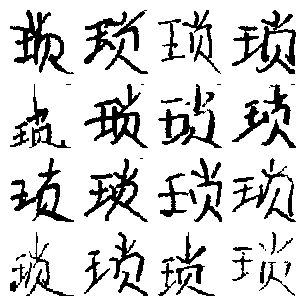 琐 琐 琐 琐
琐 琐 琐 琐
琐 琐 琐 琐
琐 琐 琐 琐